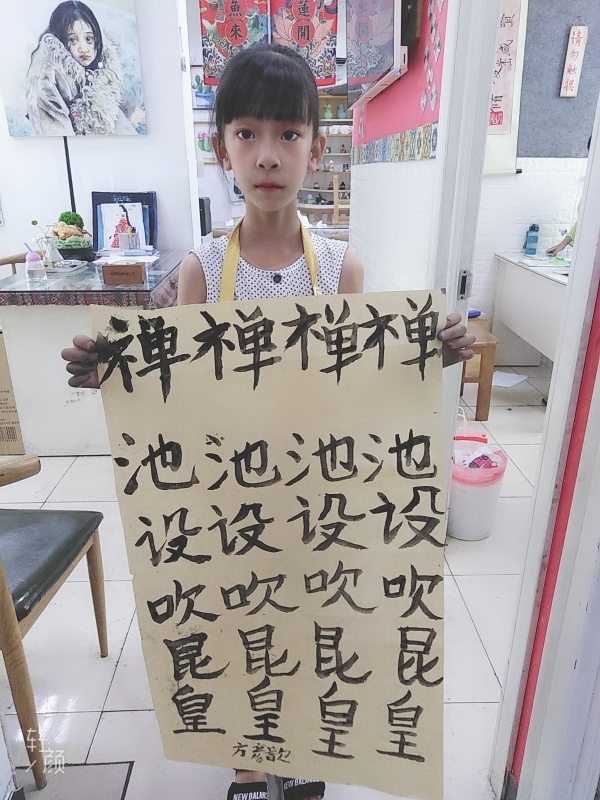 魚來
蓮開
請勿触摸
禅禅禅禅
池池池池
设设设设
吹吹吹吹
昆昆昆昆
皇皇皇皇
NEW BALANCE
轻颜